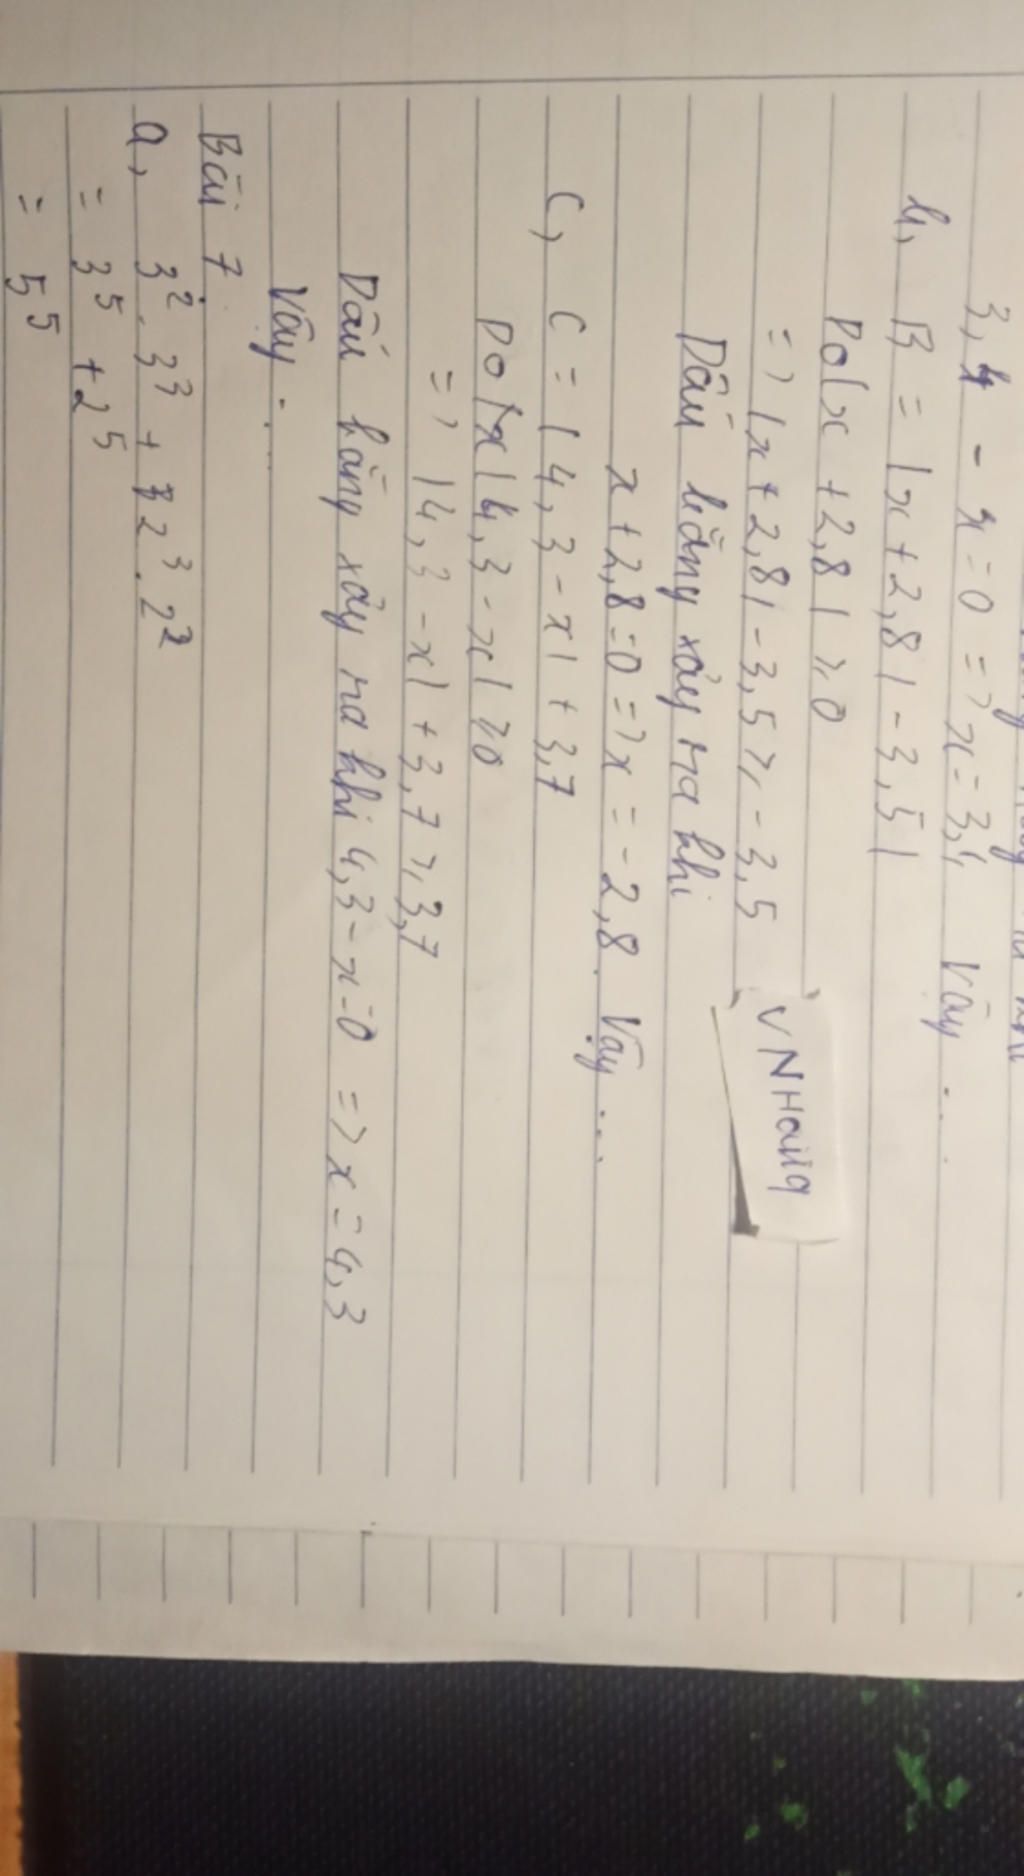 3,4 - x = 0 => x = 3,4 Vậy ....
b, B = |x + 2,8| - 3,5|
Do |x + 2,8| ≥ 0
=> |x + 2,8| - 3,5 ≥ - 3,5
VNHang
Dấu bằng xảy ra khi
x + 2,8 = 0 => x = - 2,8. Vậy ...
C, C = |4,3 - x| + 3,7
Do |4,3 - x| ≥ 0
=> |4,3 - x| + 3,7 ≥ 3,7
Dấu bằng xảy ra khi 4,3 - x = 0 => x = 4,3
Vậy ...
Bài 7
a, 3². 3³ + 2³. 2²
= 3⁵ + 2⁵
= 5⁵